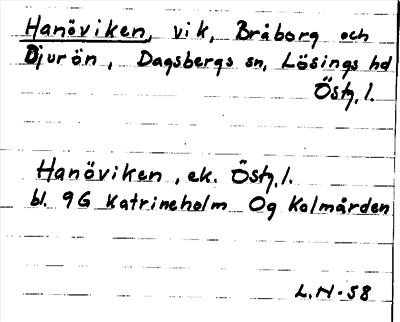 Hanöviken, vik, Bråborg och
Djurön, Dagsbergs sn, Lösings hd
Östg.l.
Hanöviken, ek. Östg.l.
bl. 9G Katrineholm Og Kolmården
L.N-58